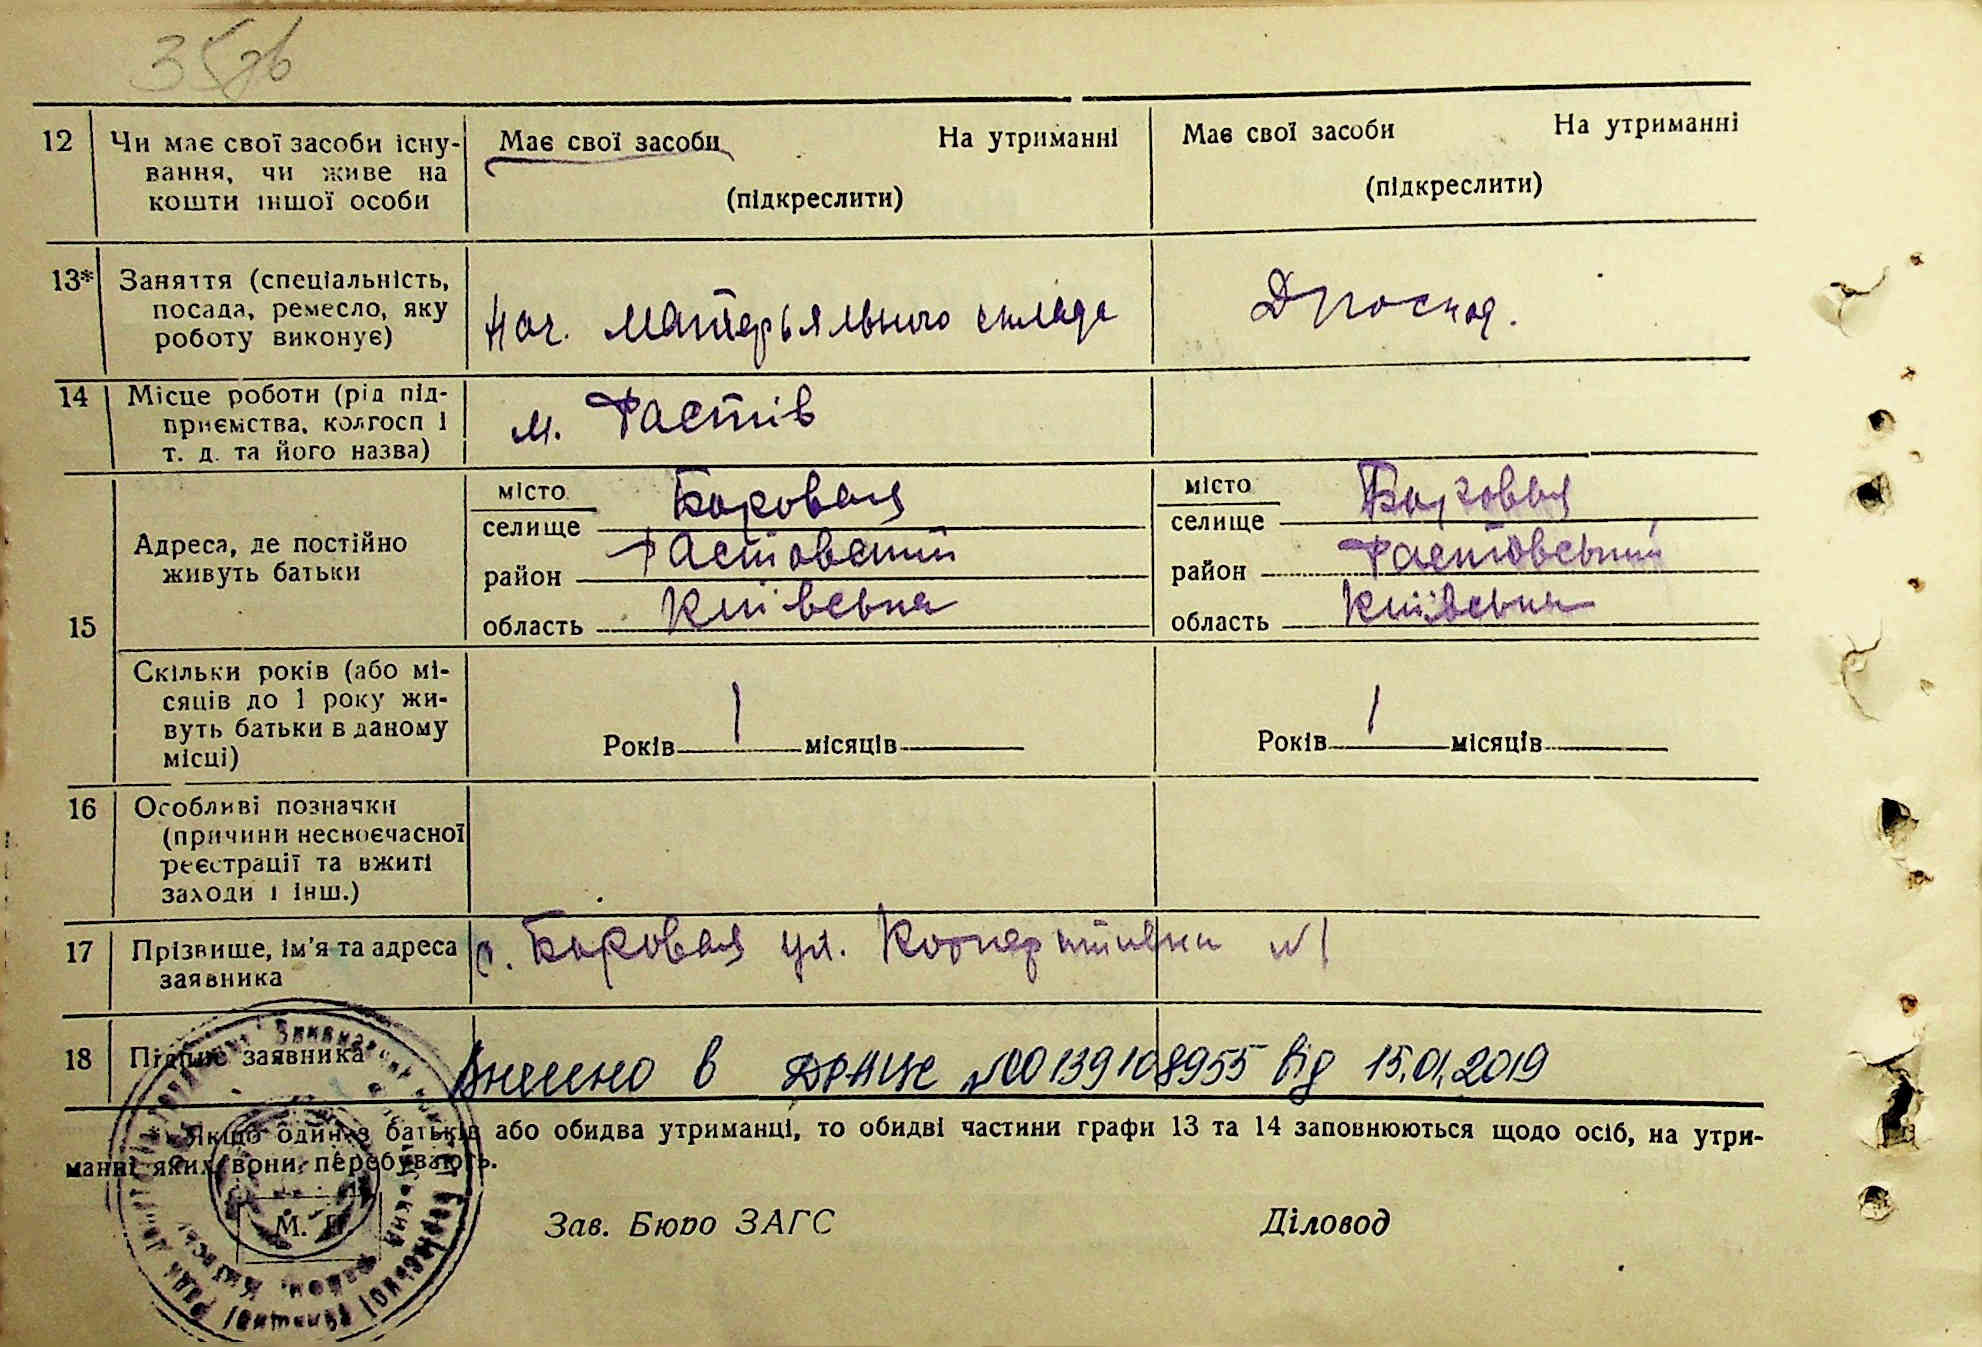 35зв
12 Чи має свої засоби існу-
вання, чи живе на
кошти іншої особи
Має свої засоби На утриманні
(підкреслити)
Має свої засоби На утриманні
(підкреслити)
13* Заняття (спеціальність,
посада, ремесло, яку
роботу виконує)
Нач. матерьяльного склада
Д/господ.
14 Місце роботи (рід під-
приємства, колгосп і
т. д. та його назва)
м. Фастів
15 Адреса, де постійно
живуть батьки
місто
селище Боровая
район Фастовский
область Київська
місто
селище Боровая
район Фастовський
область Київська
Скільки років (або мі-
сяців до 1 року жи-
вуть батьки в даному
місці)
Років 1 місяців
Років 1 місяців
16 Особливі позначки
(причини несвоєчасної
реєстрації та вжиті
заходи і інш.)
17 Прізвище, ім'я та адреса
заявника
с. Боровая ул. Коопертивна №1
18 Підпис заявника
Внесено в ДРАЦС №00139108955 від 15.01.2019
* Якщо один з батьків або обидва утриманці, то обидві частини графи 13 та 14 заповнюються щодо осіб, на утри-
манні яких вони перебувають.
М. П.
Зав. Бюро ЗАГС Діловод